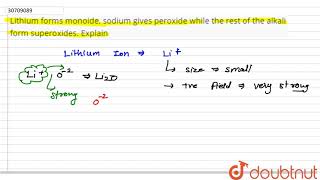 30709089
Lithium forms monoide, sodium gives peroxide while the rest of the alkali
form superoxides. Explain
Lithium Ion ⇒ Li+
↳ size → small
Li+ O-2 ⇒ Li2O
↳ +ve field → very strong
strong
O-2
doubtnut